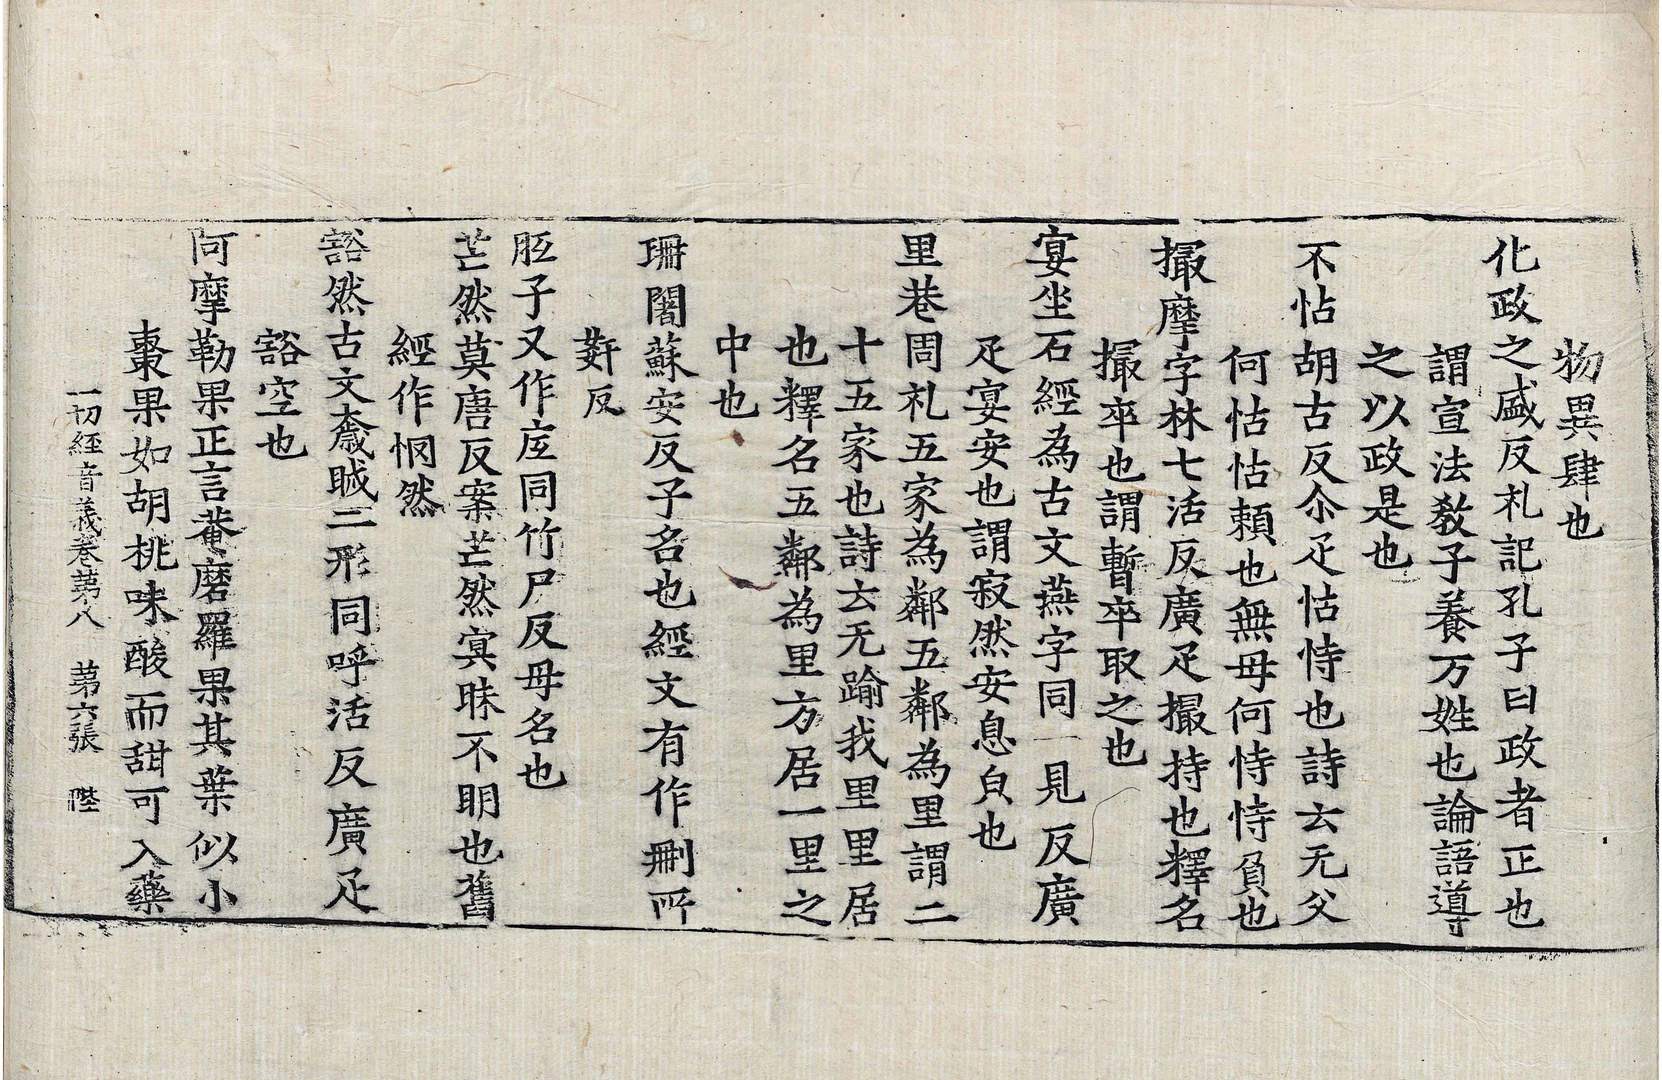 物異肆也
化政之盛反礼記孔子曰政者正也
謂宣法教子養万姓也論語導
之以政是也
不怙胡古反尒疋怙恃也詩云无父
何怙怙賴也無母何恃恃負也
撮摩字林七活反廣疋撮持也釋名
撮卒也謂暫卒取之也
宴坐石經為古文燕字同一見反廣
疋宴安也謂寂然安息皃也
里巷周礼五家為鄰五鄰為里謂二
十五家也詩云无踰我里里居
也釋名五鄰為里方居一里之
中也
珊闍蘇安反子名也經文有作刪所
姧反
胝子又作㡳同竹尸反母名也
芒然莫唐反案芒然冥昧不明也舊
經作惘然
豁然古文奯𥇛二形同呼活反廣疋
豁空也
阿摩勒果正言菴磨羅果其葉似小
棗果如胡桃味酸而甜可入藥
一切經音義卷苐八 苐六張 陛